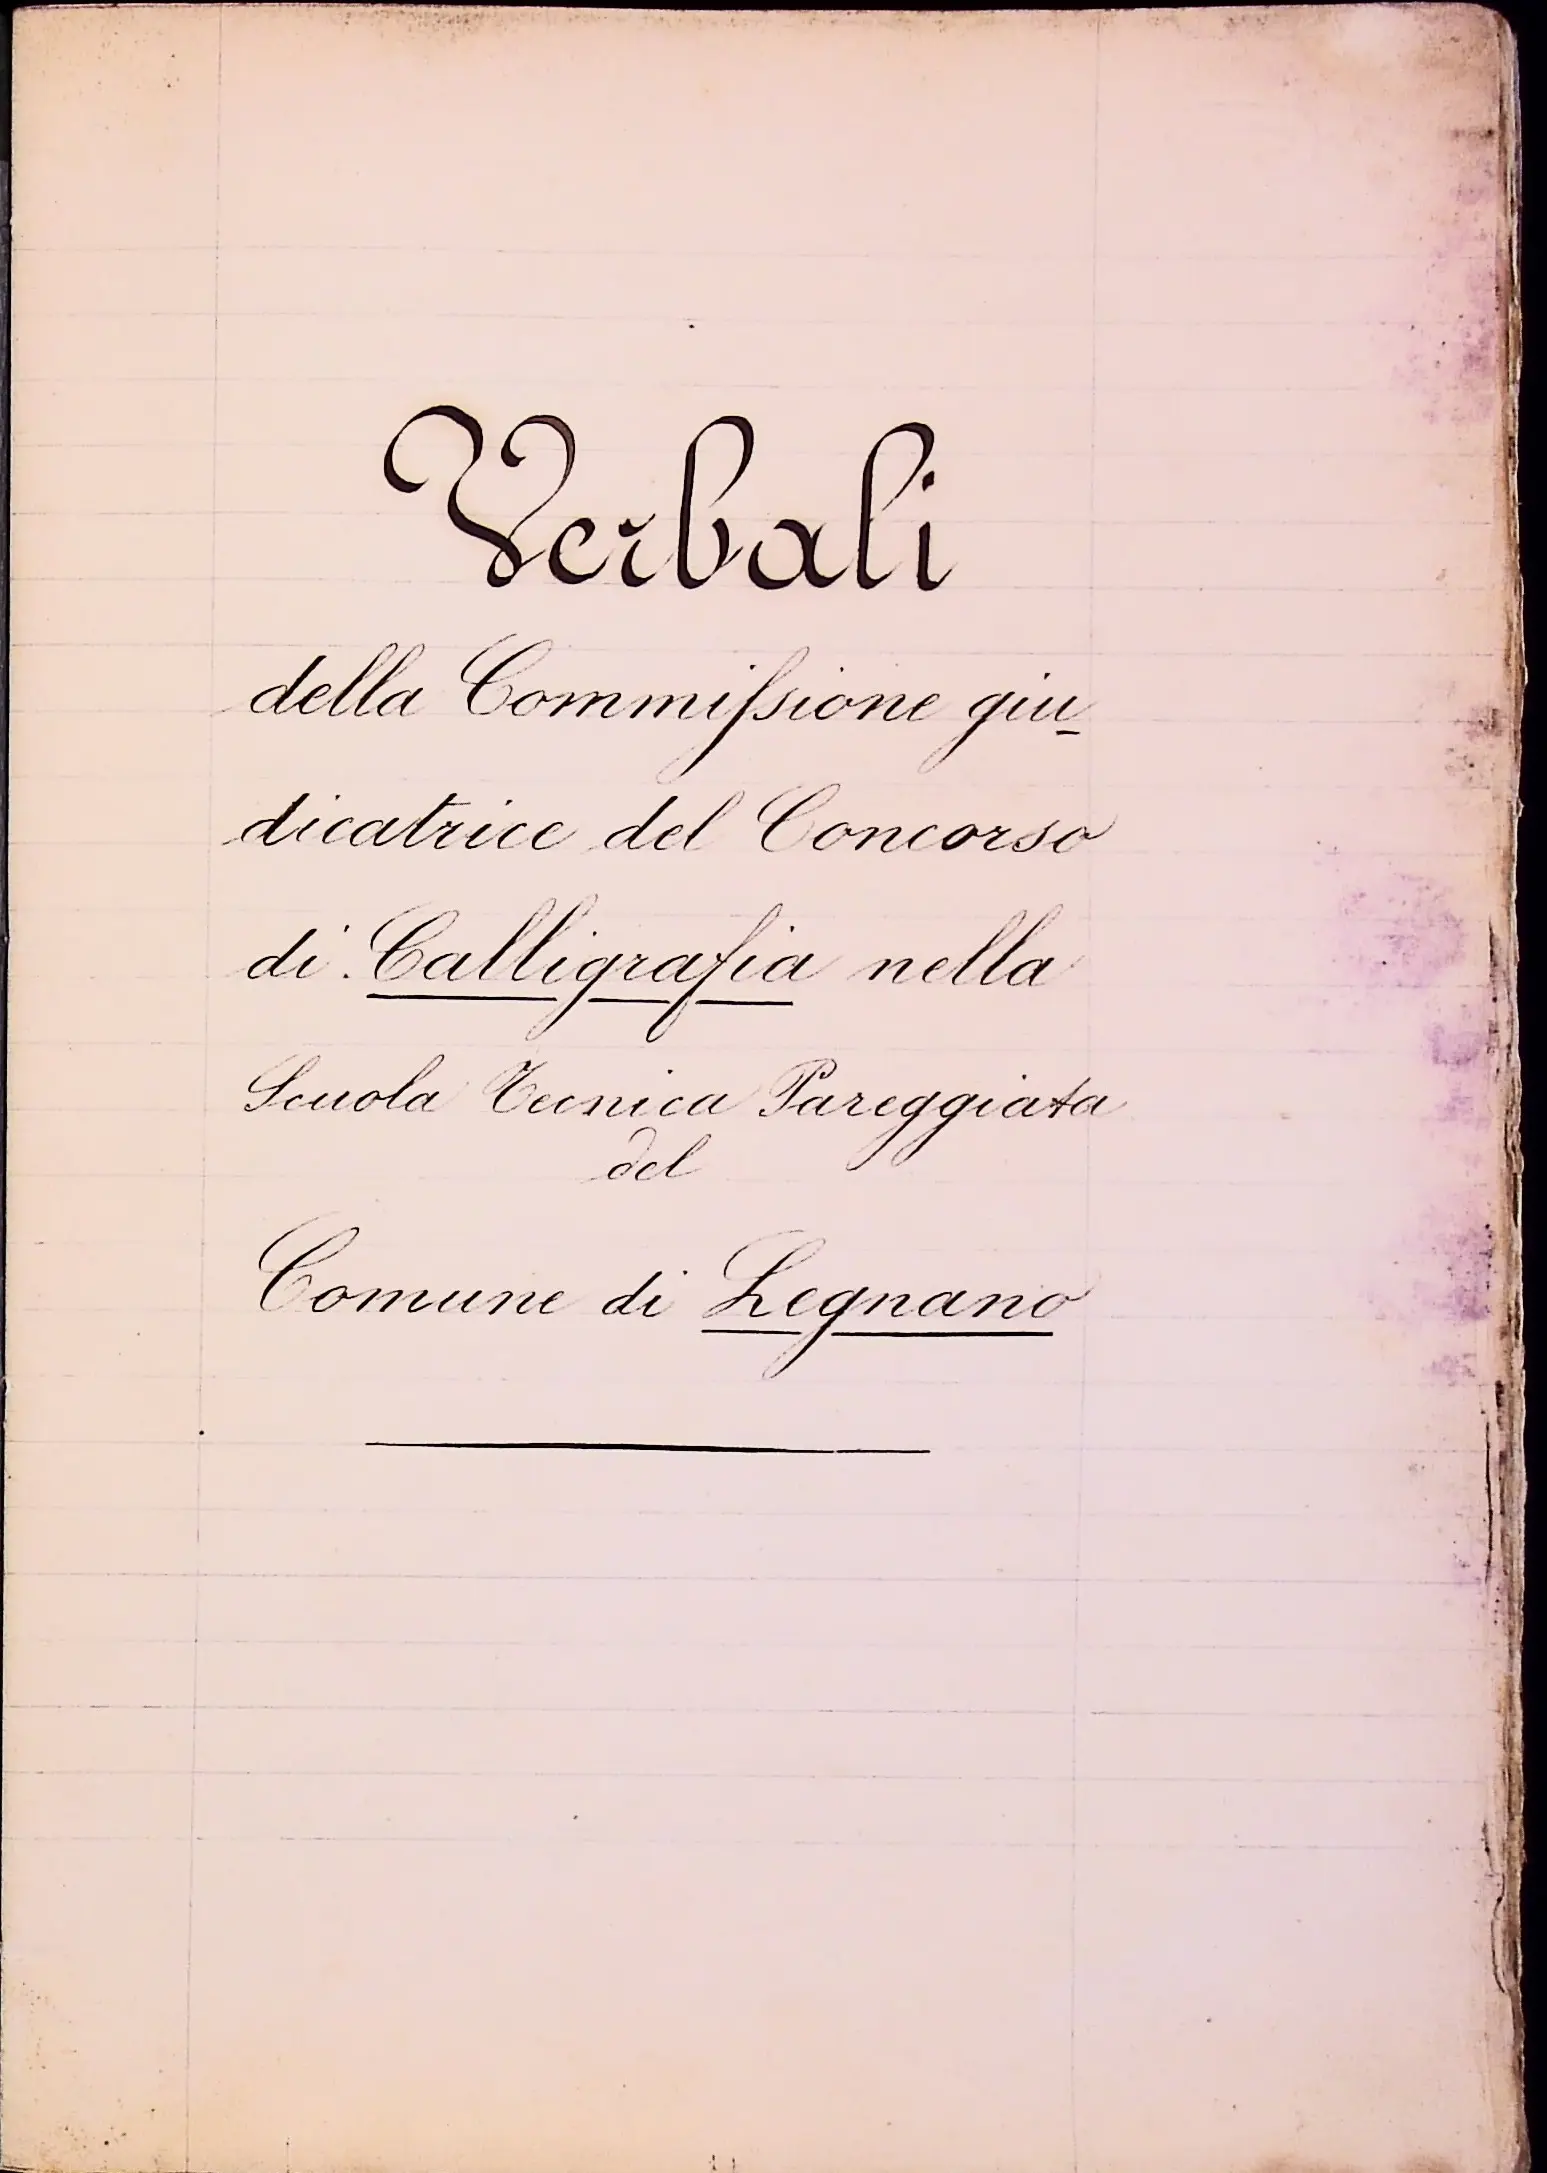 Verbali
della Commiſsione giu-
dicatrice del Concorso
di Calligrafia nella
Scuola Tecnica Pareggiata
del
Comune di Legnano